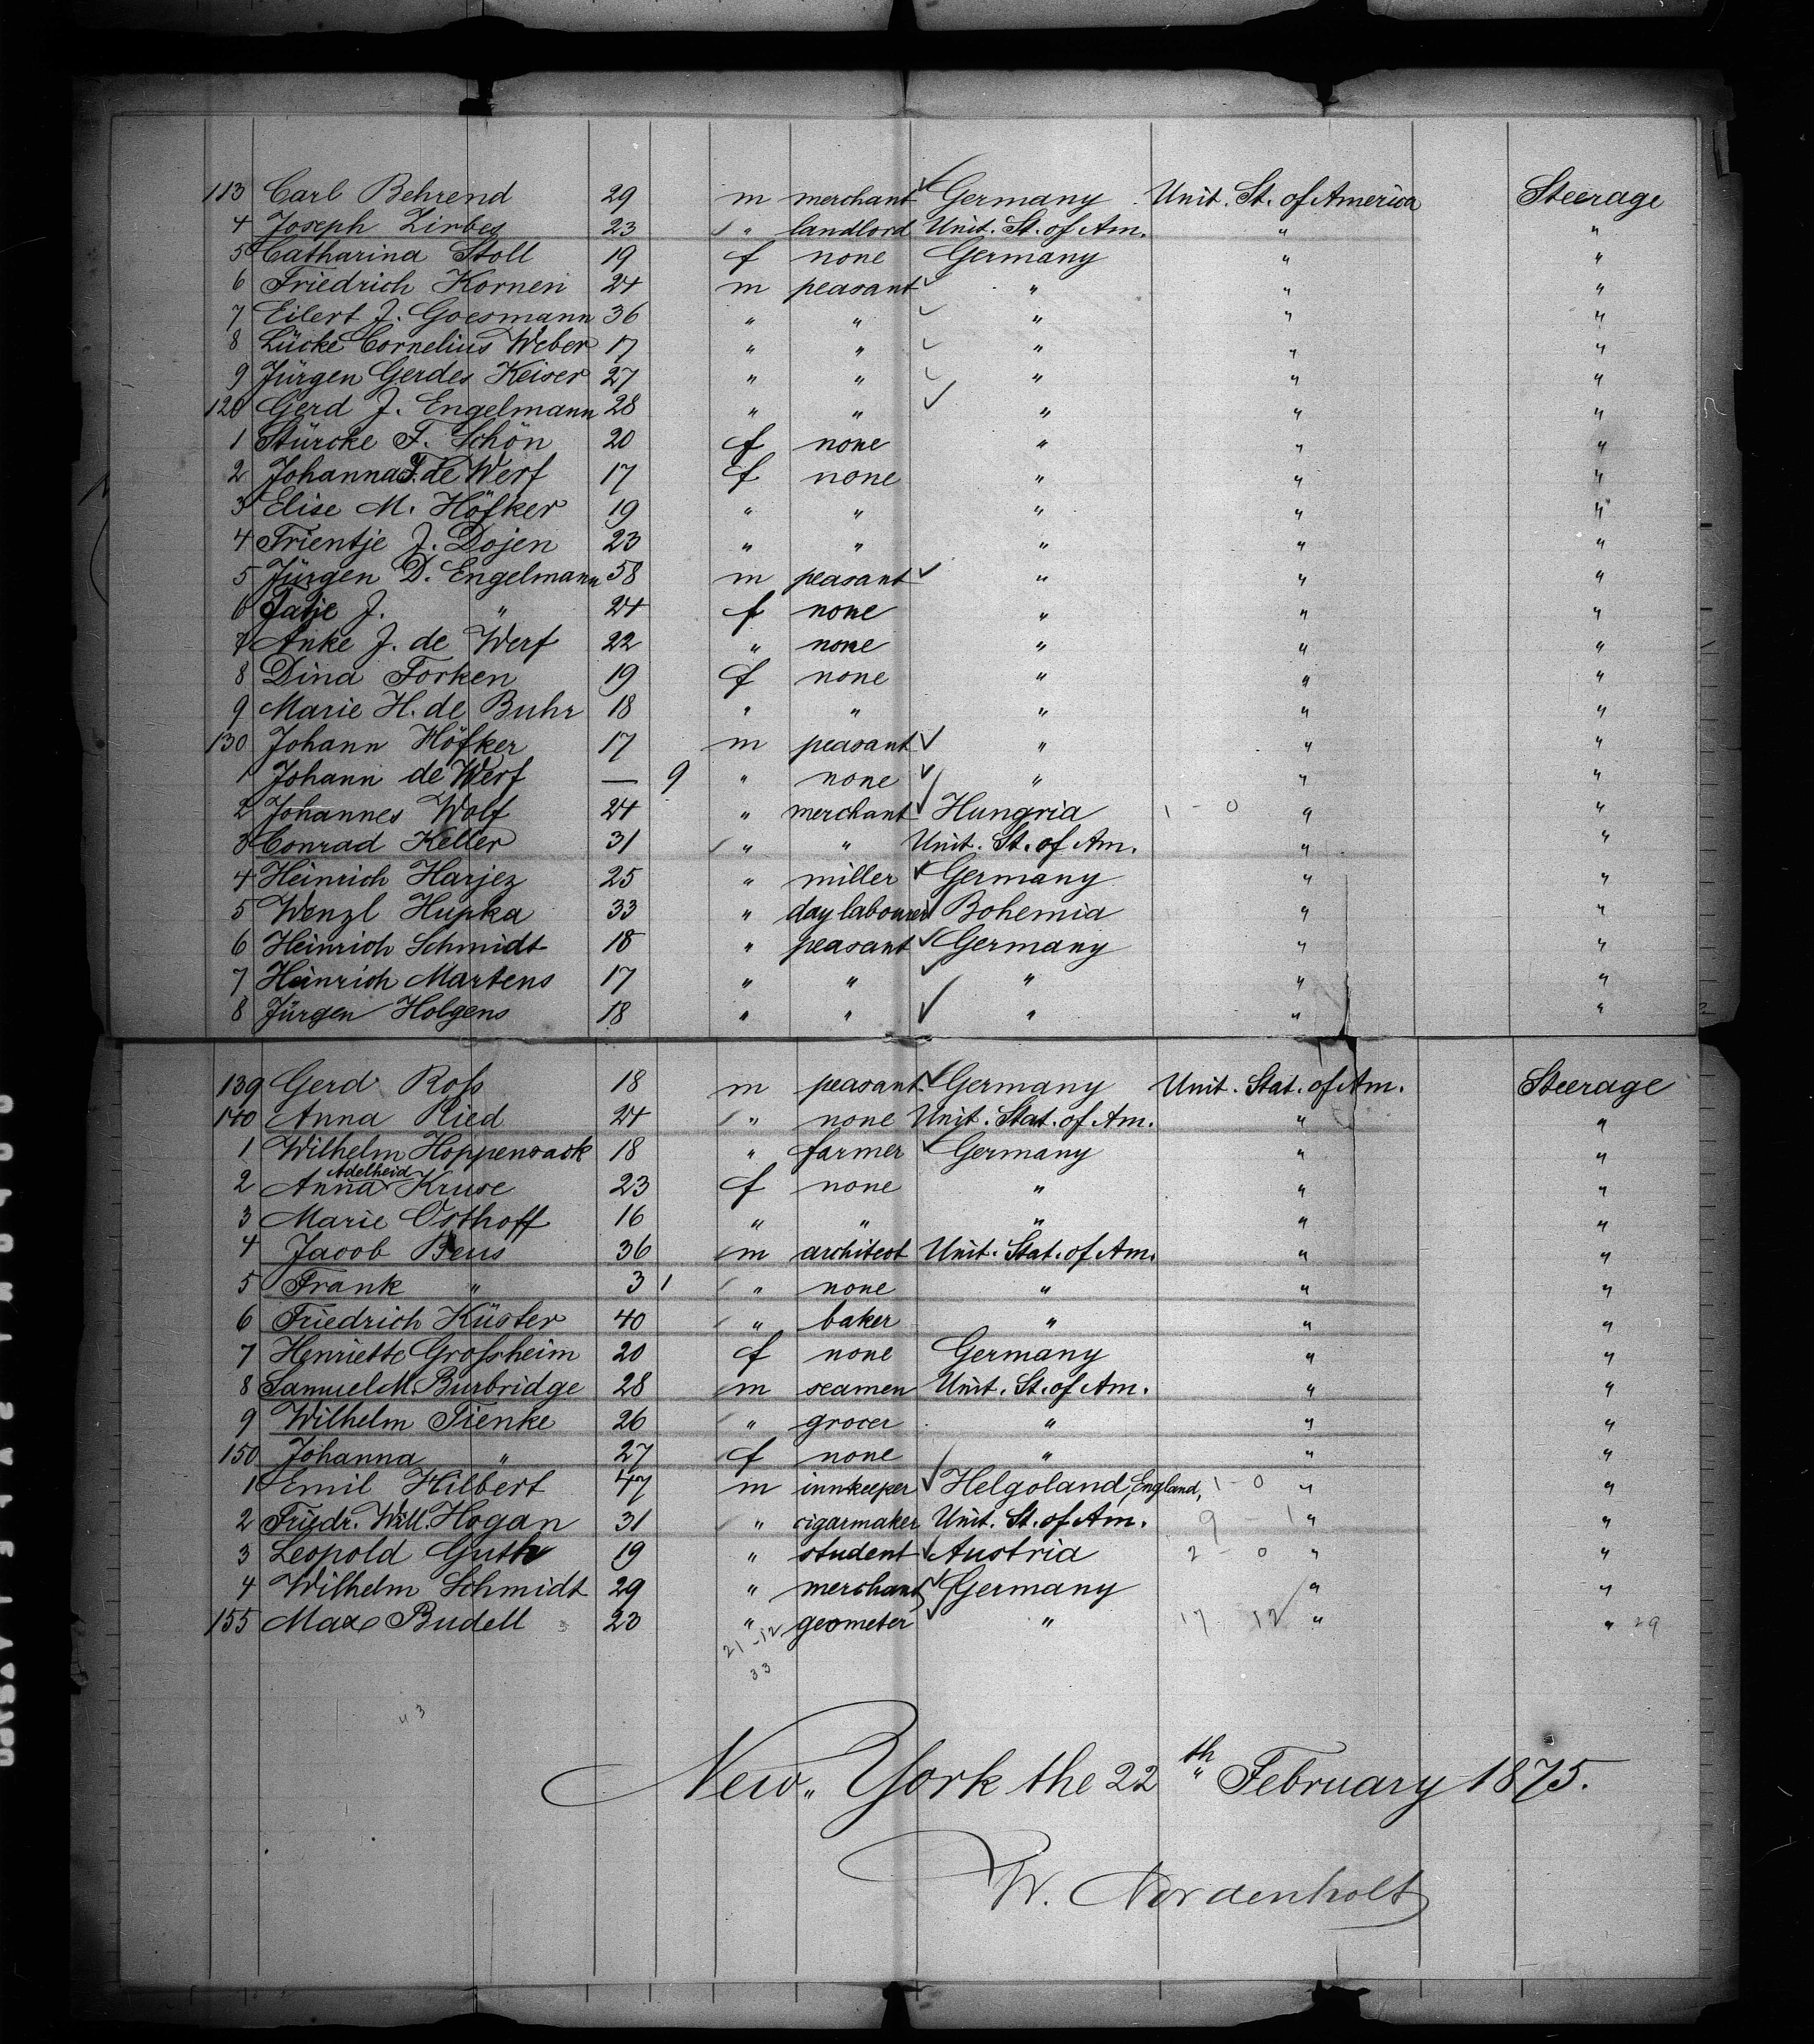 113 Carl Behrend 29 m merchant Germany Unit. St. of America Steerage
4 Joseph Zirbes 23 " landlord Unit. St. of Am. " "
5 Catharina Stoll 19 f none Germany " "
6 Friedrich Kornen 24 m peasant " " "
7 Eilert J. Goesmann 36 " " " " "
8 Lücke Cornelius Weber 17 " " " " "
9 Jürgen Gerdes Keiser 27 " " " " "
120 Gerd J. Engelmann 28 " " " " "
1 Stürcke F. Schön 20 f none " " "
2 Johanna F. de Werf 17 f none " " "
3 Elise M. Höfker 19 " " " " "
4 Trientje J. Dojen 23 " " " " "
5 Jürgen D. Engelmann 58 m peasant " " "
6 Jatje J. " 24 f none " " "
7 Anke J. de Werf 22 " none " " "
8 Dina Forken 19 f none " " "
9 Marie H. de Buhr 18 " " " " "
130 Johann Höfker 17 m peasant " " "
1 Johann de Werf — 9 " none " " "
2 Johannes Wolf 24 " merchant Hungria 1 - 0 " "
3 Conrad Keller 31 " " Unit. St. of Am. " "
4 Heinrich Harjez 25 " miller Germany " "
5 Wenzl Hupka 33 " day labourer Bohemia " "
6 Heinrich Schmidt 18 " peasant Germany " "
7 Heinrich Martens 17 " " " " "
8 Jürgen Holgens 18 " " " " "
139 Gerd Roſs 18 m peasant Germany Unit. Stat. of Am. Steerage
140 Anna Ried 24 " none Unit. Stat. of Am. " "
1 Wilhelm Hoppensack 18 " farmer Germany " "
2 Anna Adelheid Kruse 23 f none " " "
3 Marie Osthoff 16 " " " " "
4 Jacob Beus 36 m architect Unit. Stat. of Am. " "
5 Frank " 3 1 " none " " "
6 Friedrich Küster 40 " baker " " "
7 Henriette Groſsheim 20 f none Germany " "
8 Samuel M. Burbridge 28 m seamen Unit. St. of Am. " "
9 Wilhelm Tienke 26 " grocer " " "
150 Johanna " 27 f none " " "
1 Emil Hilbert 47 m innkeeper Helgoland, England, 1 - 0 " "
2 Friedr. Will. Hogan 31 " cigarmaker Unit. St. of Am. 9 - 1 " "
3 Leopold Guth 19 " student Austria 2 - 0 " "
4 Wilhelm Schmidt 29 " merchant Germany " "
155 Max Budell 23 " geometer " 17 12 " " 29
21 - 12
33
43
New-York the 22th February 1875.
W. Nordenholt